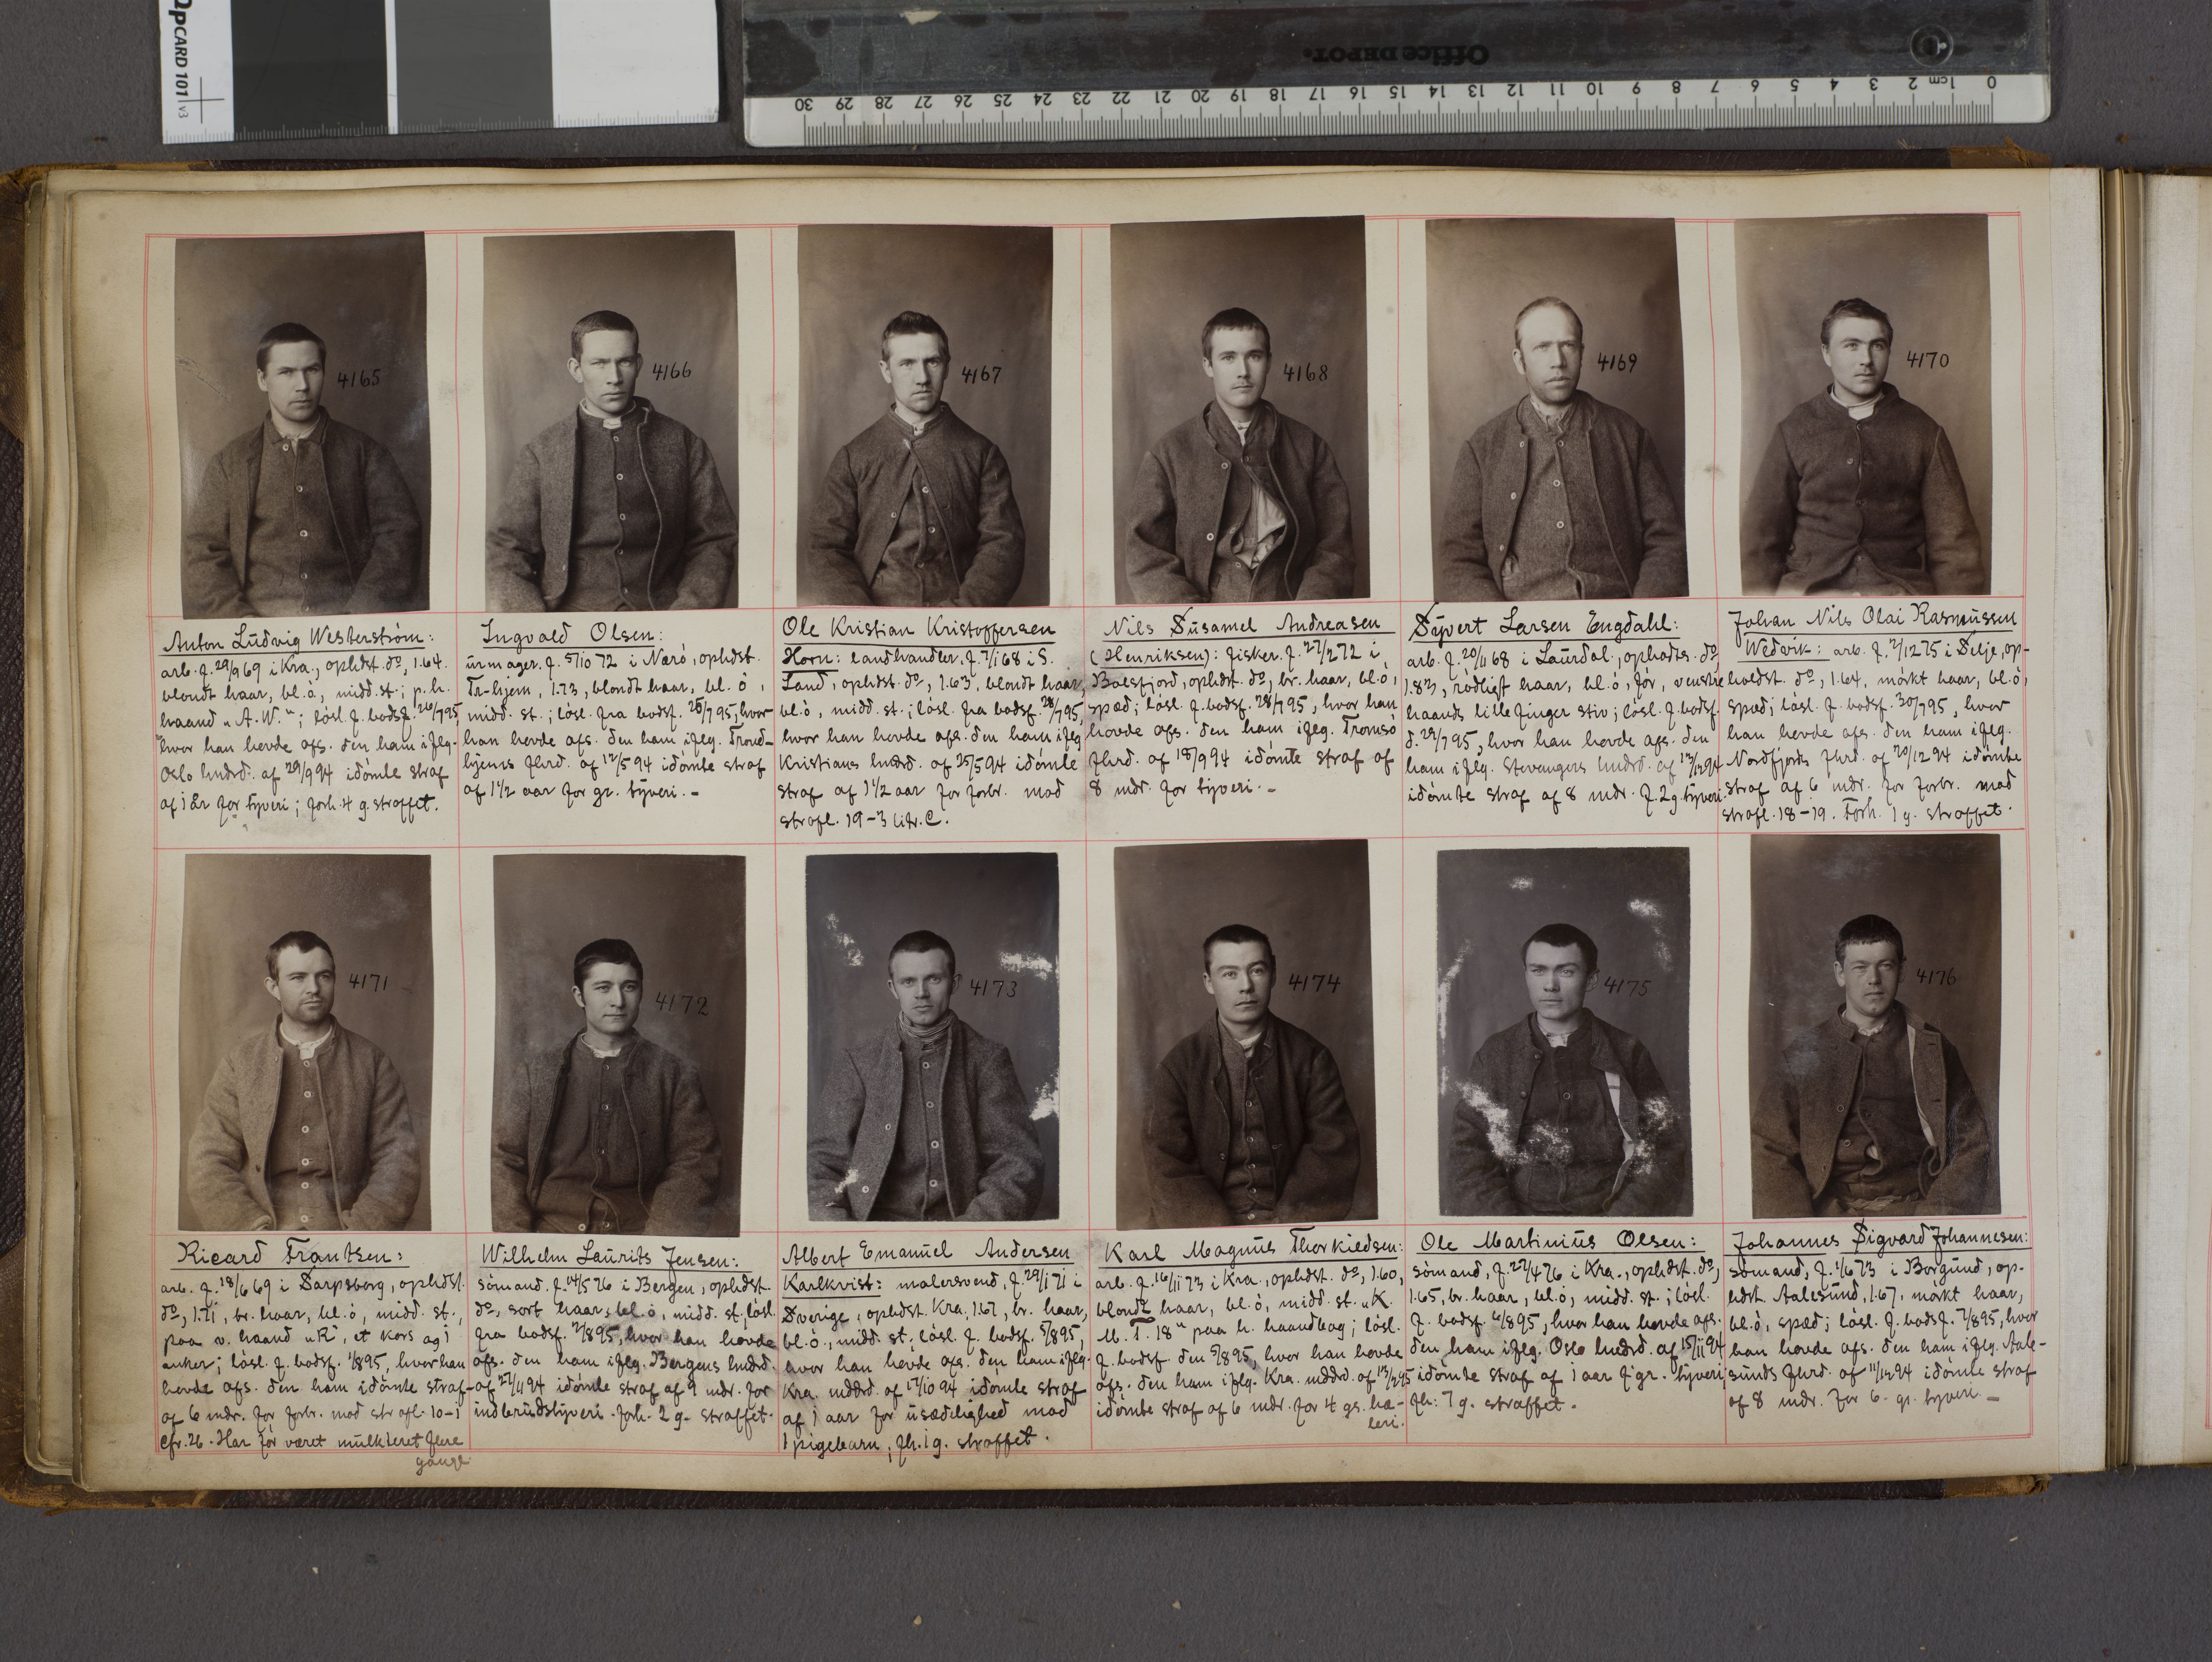 QPCARD 101 v3
Office DEPOT.
30 29 28 27 26 25 24 23 22 21 20 19 18 17 16 15 14 13 12 11 10 9 8 7 6 5 4 3 2 1 cm 0
4165
4166
4167
4168
4169
4170
Anton Ludvig Westerström:
arb. f. 29/9 69 i Kra., ophdst. do, 1.64.
blondt haar, bl. ö, midd. st.; p. h.
haand „A. W."; lösl. f. bodsf. 26/7 95,
hvor han havde afs. den ham iflg.
Oslo hndrd. af 29/9 94 idömte straf
af 1 år for tyveri; forh. 4 g. straffet.
Ingvald Olsen:
urmager. f. 5/10 72 i Nærö, ophdst.
Tr-hjem, 1.73, blondt haar, bl. ö,
midd. st.; lösl. fra bodsf. 26/7 95, hvor
han havde afs. den ham iflg. Trond-
hjems fhrd. af 12/5 94 idömte straf
af 1½ aar for gr. tyveri. -
Ole Kristian Kristoffersen
Horn: landhandler, f. 7/1 68 i S.
Land, ophdst. do, 1.63, blondt haar,
bl. ö, midd. st.; lösl. fra bodsf. 28/7 95,
hvor han havde afs. den ham iflg.
Kristians hndrd. af 25/5 94 idömte
straf af 1½ aar for forbr. mod
strafl. 19-3 litr. C.
Nils Susamel Andreasen
(Henriksen): fisker. f. 27/2 72 i
Balsfjord, ophdst. do, br. haar, bl. ö,
spæd; lösl. f. bodsf. 28/7 95, hvor han
havde afs. den ham iflg. Tromsö
fhrd. af 18/9 94 idömte straf af
8 mdr. for tyveri. -
Syvert Larsen Engdahl:
arb. f. 20/11 68 i Laurdal, opholdts. do,
1.83, rödligt haar, bl. ö, för, venstre
haands lille finger stiv; lösl. f. bodsf.
d. 29/7 95, hvor han havde afs. den
ham iflg. Stavangers hndrd. af 13/12 94
idömte straf af 8 mdr. f. 2 g. tyveri.
Johan Nils Olai Rasmussen
Wedvik: arb. f. 2/12 75 i Selje, op-
holdst. do, 1.64, mörkt haar, bl. ö,
spæd; lösl. f. bodsf. 30/7 95, hvor
han havde afs. den ham iflg.
Nordfjords fhrd. af 20/12 94 idömte
straf af 6 mdr. for forbr. mod
strafl. 18-19. Forh. 1 g. straffet.
4171
4172
4173
4174
4175
4176
Ricard Frantsen:
arb. f. 18/6 69 i Sarpsborg, ophdst.
do, 1.71, br. haar, bl. ö, midd. st.,
paa v. haand „R", et kors og 1
anker; lösl. f. bodsf. 1/8 95, hvor han
havde afs. den ham idömte straf
af 6 mdr. for forbr. mod strafl. 10-1
cfr. 26. Har för været mulkteret flere
gange.
Wilhelm Laurits Jensen:
sömand. f. 14/5 76 i Bergen, ophdst.
do, sort haar, bl. ö, midd. st., lösl.
fra bodsf. 2/8 95, hvor han havde
afs. den ham iflg. Bergens hndrd.
af 27/11 94 idömte straf af 9 mdr. for
indbrudstyveri. forh. 2 g. straffet.
Albert Emanuel Andersen
Karlkvist: malersvend, f. 29/1 71 i
Sverige, ophdst. Kra. 1.67, br. haar,
bl. ö, midd. st., lösl. f. bodsf. 5/8 95,
hvor han havde afs. den ham iflg.
Kra. mddrd. af 17/10 94 idömte straf
af 1 aar for usædelighed mod
1 pigebarn; fh. 1 g. straffet.
Karl Magnus Thorkildsen:
arb. f. 16/11 73 i Kra., ophdst. do, 1.60,
blondt haar, bl. ö, midd. st. „K.
M. T. 18" paa h. haandbag; lösl.
f. bodsf. den 5/8 95, hvor han havde
afs. den ham iflg. Kra. mddrd. af 13/2 95
idömte straf af 6 mdr. for 4 gs. hæ-
leri.
Ole Martinius Olsen:
sömand, f. 22/4 76 i Kra., ophdst. do,
1.65, br. haar, bl. ö, midd. st.; lösl.
f. bodsf. 6/8 95, hvor han havde afs.
den ham iflg. Oslo hndrd. af 15/11 94
idömte straf af 1 aar f. gr. tyveri;
fh: 7 g. straffet.
Johannes Sigvard Johannesen:
sömand, f. 1/6 73 i Borgund, op-
hdst. Aalesund, 1.67, mörkt haar,
bl. ö, spæd; lösl. f. bodsf. 7/8 95, hvor
han havde afs. den ham iflg. Aale-
sunds fhrd. af 11/12 94 idömte straf
af 8 mdr. for 6. g. tyveri. -